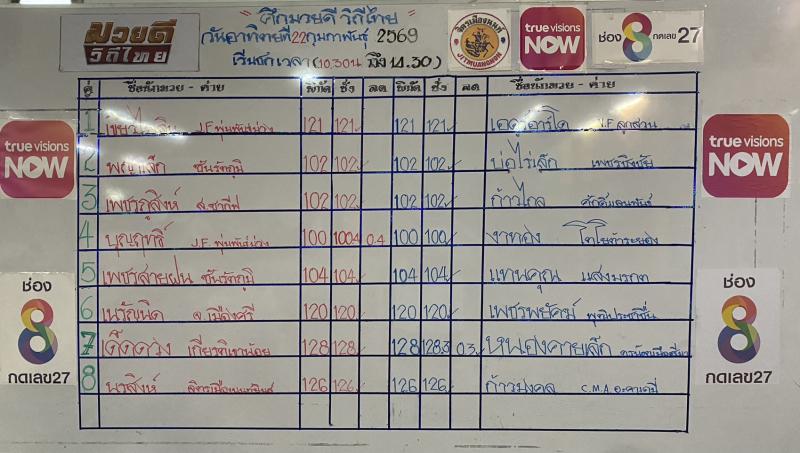 มวยดี
วิถีไทย
"ศึกมวยดี วิถีไทย"
วันอาทิตย์ที่ 22 กุมภาพันธ์ 2569
เริ่มชกเวลา (10.30น ถึง 14.30)
จิตรเมืองนนท์
JITMUANGNON
true visions
NOW
ช่อง 8 กดเลข 27
คู่ ชื่อนักมวย - ค่าย พิกัด ชั่ง ลด พิกัด ชั่ง ลด ชื่อนักมวย - ค่าย
1 J.F. พุ่มพันธ์ม่วง 121 121 121 121 เอดูอาร์โด N.F ลูกสวน
2 พญาเล็ก ชันรัตภูมิ 102 102 102 102 บ่อไร่เล็ก เพชรชิงชัย
3 เพชรภูสิงห์ ส.ซากีฟ 102 102 102 102 ก้าวไกล
4 บุญฤทธิ์ J.F. พุ่มพันธ์ม่วง 100 100.4 0.4 100 100 งาทอง โตโยต้าระยอง
5 เพชรสายฝน ชันรัตภูมิ 104 104 104 104 แทนคุณ แสงมรกต
6 เนรัญนิด 120 120 120 120 เพชรพยัคฆ์
7 เด็ดดวง เกียรติเขาน้อย 128 128 128 128.3 0.3 หนองคายเล็ก
8 นรสิงห์ 126 126 126 126 ก้าวมงคล C.M.A อะคาเดมี่
true visions
NOW
true visions
NOW
ช่อง
8
กดเลข27
ช่อง
8
กดเลข27